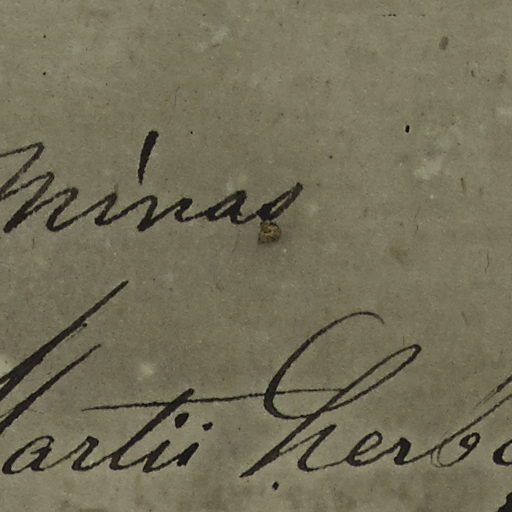 Minas
Martii herb